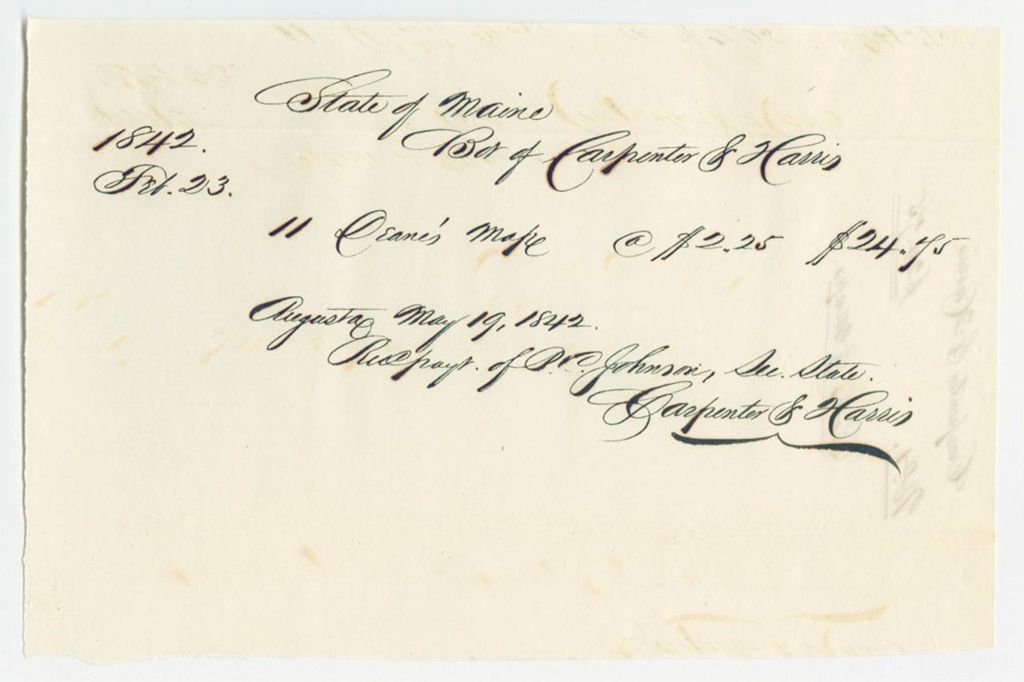 State of Maine
Bot of Carpenter & Harris
1842.
Feb. 23.
11 Deane's Maps @ $2.25 $24.75
Augusta, May 19, 1842.
Recd payt. of P. C. Johnson, Sec. State.
Carpenter & Harris